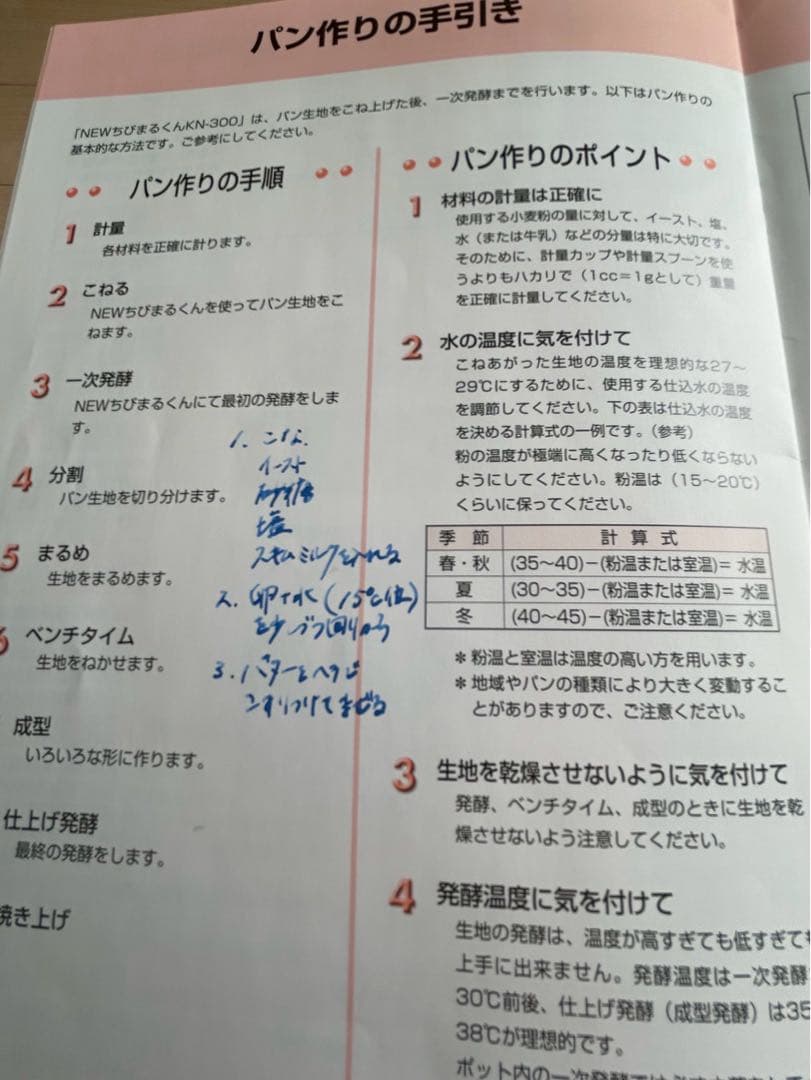 パン作りの手引き
「NEWちびまるくんKN-300」は、パン生地をこね上げた後、一次発酵までを行います。以下はパン作りの
基本的な方法です。ご参考にしてください。
パン作りの手順
1 計量
各材料を正確に計ります。
2 こねる
NEWちびまるくんを使ってパン生地をこ
ねます。
3 一次発酵
NEWちびまるくんにて最初の発酵をしま
す。
4 分割
パン生地を切り分けます。
5 まるめ
生地をまるめます。
ベンチタイム
生地をねかせます。
成型
いろいろな形に作ります。
仕上げ発酵
最終の発酵をします。
焼き上げ
1. こな
イースト
砂糖
塩
スキムミルクを入れる
2. 卵+水(15℃位)
を少しづつ
3. バターを
こすりつけてまぜる
パン作りのポイント
1 材料の計量は正確に
使用する小麦粉の量に対して、イースト、塩、
水(または牛乳)などの分量は特に大切です。
そのために、計量カップや計量スプーンを使
うよりもハカリで(1cc=1gとして)重量
を正確に計量してください。
2 水の温度に気を付けて
こねあがった生地の温度を理想的な27~
29℃にするために、使用する仕込水の温度
を調節してください。下の表は仕込水の温度
を決める計算式の一例です。(参考)
粉の温度が極端に高くなったり低くならない
ようにしてください。粉温は(15~20℃)
くらいに保ってください。
季節 計算式
春・秋 (35~40)-(粉温または室温)= 水温
夏 (30~35)-(粉温または室温)= 水温
冬 (40~45)-(粉温または室温)= 水温
*粉温と室温は温度の高い方を用います。
*地域やパンの種類により大きく変動するこ
とがありますので、ご注意ください。
3 生地を乾燥させないように気を付けて
発酵、ベンチタイム、成型のときに生地を乾
燥させないよう注意してください。
4 発酵温度に気を付けて
生地の発酵は、温度が高すぎても低すぎても
上手に出来ません。発酵温度は一次発酵
30℃前後、仕上げ発酵(成型発酵)は35
38℃が理想的です。
ポット内の一次発酵では